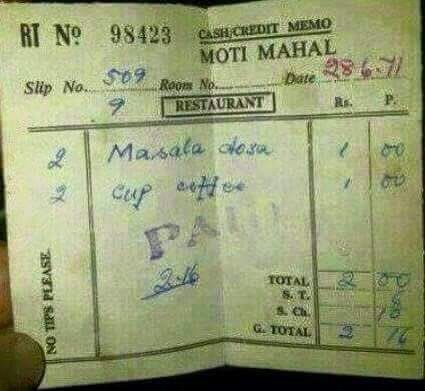 RT No 98423 CASH/CREDIT MEMO
MOTI MAHAL
Slip No. 509 Room No. Date 28.6.71
9 RESTAURANT Rs. P.
2 Masala dosa 1 00
2 cup coffee 1 00
PAID
2.16
TOTAL 2 00
S. T.
S. Ch.
G. TOTAL 2 16
NO TIPS PLEASE.